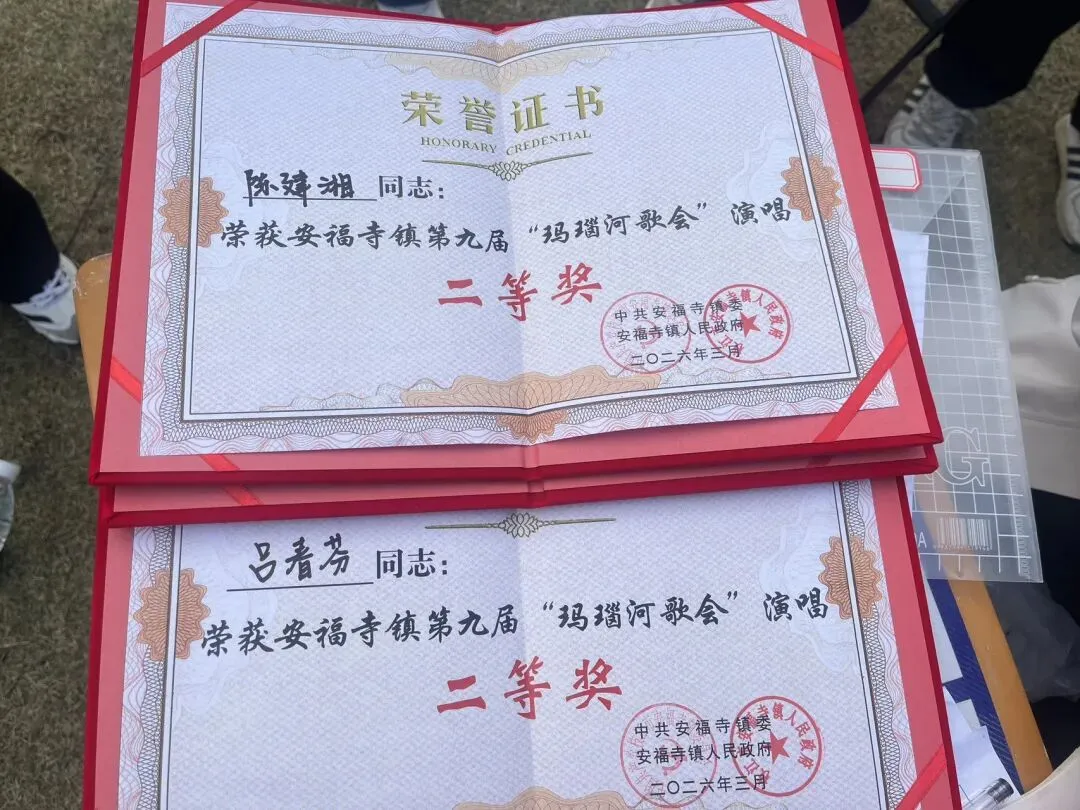 荣誉证书
HONORARY CREDENTIAL
陈建湘 同志：
荣获安福寺镇第九届“玛瑙河歌会”演唱
二等奖
中共安福寺镇委
安福寺镇人民政府
二〇二六年三月
吕春芬 同志：
荣获安福寺镇第九届“玛瑙河歌会”演唱
二等奖
中共安福寺镇委
安福寺镇人民政府
二〇二六年三月